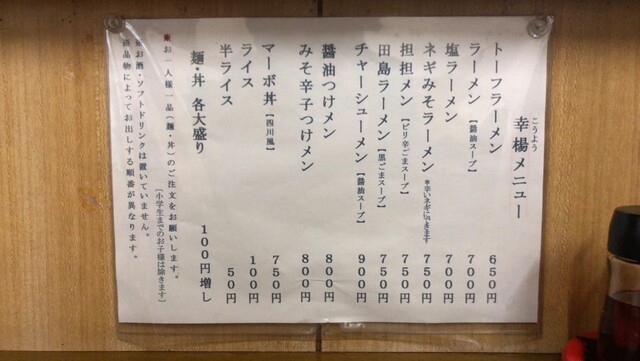 こうよう
幸楊メニュー
トーフラーメン 650円
ラーメン【醤油スープ】 700円
塩ラーメン 700円
ネギみそラーメン※辛いネギに代きます 750円
担担メン【ピリ辛ごまスープ】 750円
田島ラーメン【黒ごまスープ】 750円
チャーシューメン【醤油スープ】 900円
醤油つけメン 800円
みそ辛子つけメン 800円
マーボ丼【四川風】 750円
ライス 100円
半ライス 50円
麺・丼 各大盛り 100円増し
※お一人様一品(麺・丼)のご注文をお願いします。
(小学生までのお子様は除きます)
※お酒・ソフトドリンクは置いていません。
商品物によってお出しする順番が異なります。